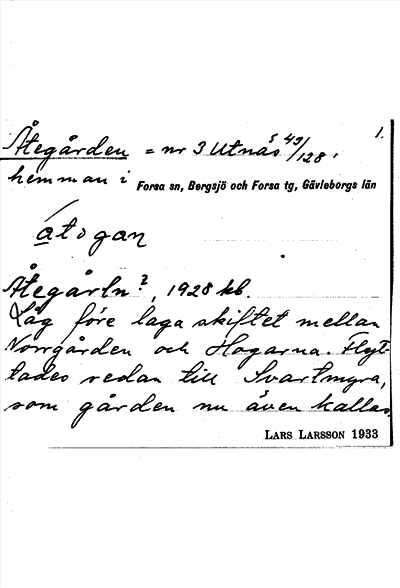 1.
Åtegården = nr 3 Utnäs 5 49/128,
hemman i Forsa sn, Bergsjö och Forsa tg, Gävleborgs län
átogan
Åtegårln?, 1928 kb.
Låg före laga skiftet mellan
Norrgården och Hagarna. Flyt-
tades sedan till Svartmyra,
som gården nu även kallas.
LARS LARSSON 1933